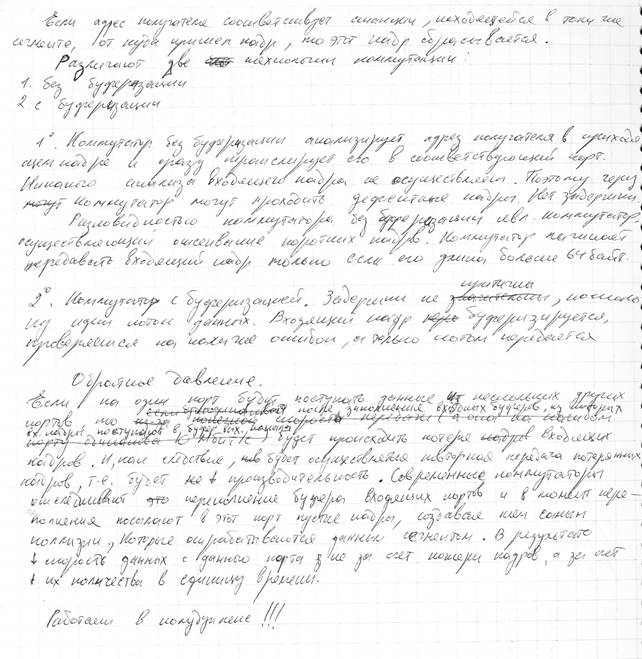 Если адрес получателя соответствует станции, находящейся в том же
сегменте, откуда пришел кадр, то этот кадр сбрасывается.
Различают две технологии коммутации:
1. без буферизации
2 с буферизации
1°. Коммутатор без буферизации анализирует адрес получателя в приходя
щем кадре и сразу транслирует его в соответствующий порт.
Никакого анализа входящего кадра не осуществляет. Поэтому через
коммутатор могут проходить дефектные кадры. Нет задержки
Разновидностью коммутатора без буферизации явл. коммутатор,
осуществляющий отсеивание коротких кадров. Коммутатор начинает
передавать входящий кадр только если его длина больше 64 байт.
критичны
2°. Коммутатор с буферизацией. Задержки не , поскольку
идет поток данных. Входящий кадр буферизируется,
проверяется на наличие ошибок, и только потом передается
Обратное давление.
Если на один порт будут поступать данные из нескольких других
портов, то после заполнения входных буферов, из которых
вх. кадры, поступают в буфер вых.
будет происходить потеря входящих
кадров. И, как следствие, будет осуществляться повторная передача потерянных
кадров, т.е. будет ↓ производительность. Современные коммутаторы
отслеживают переполнение буфера входящих портов и в момент пере-
полнения посылают в этот порт пустые кадры, создавая тем самым
коллизии, которые отрабатываются данным сегментом. В результате
↓ скорость данных с данного порта не за счет потери кадров, а за счет
↓ их количества в единицу времени.
Работает в полудуплексе!!!